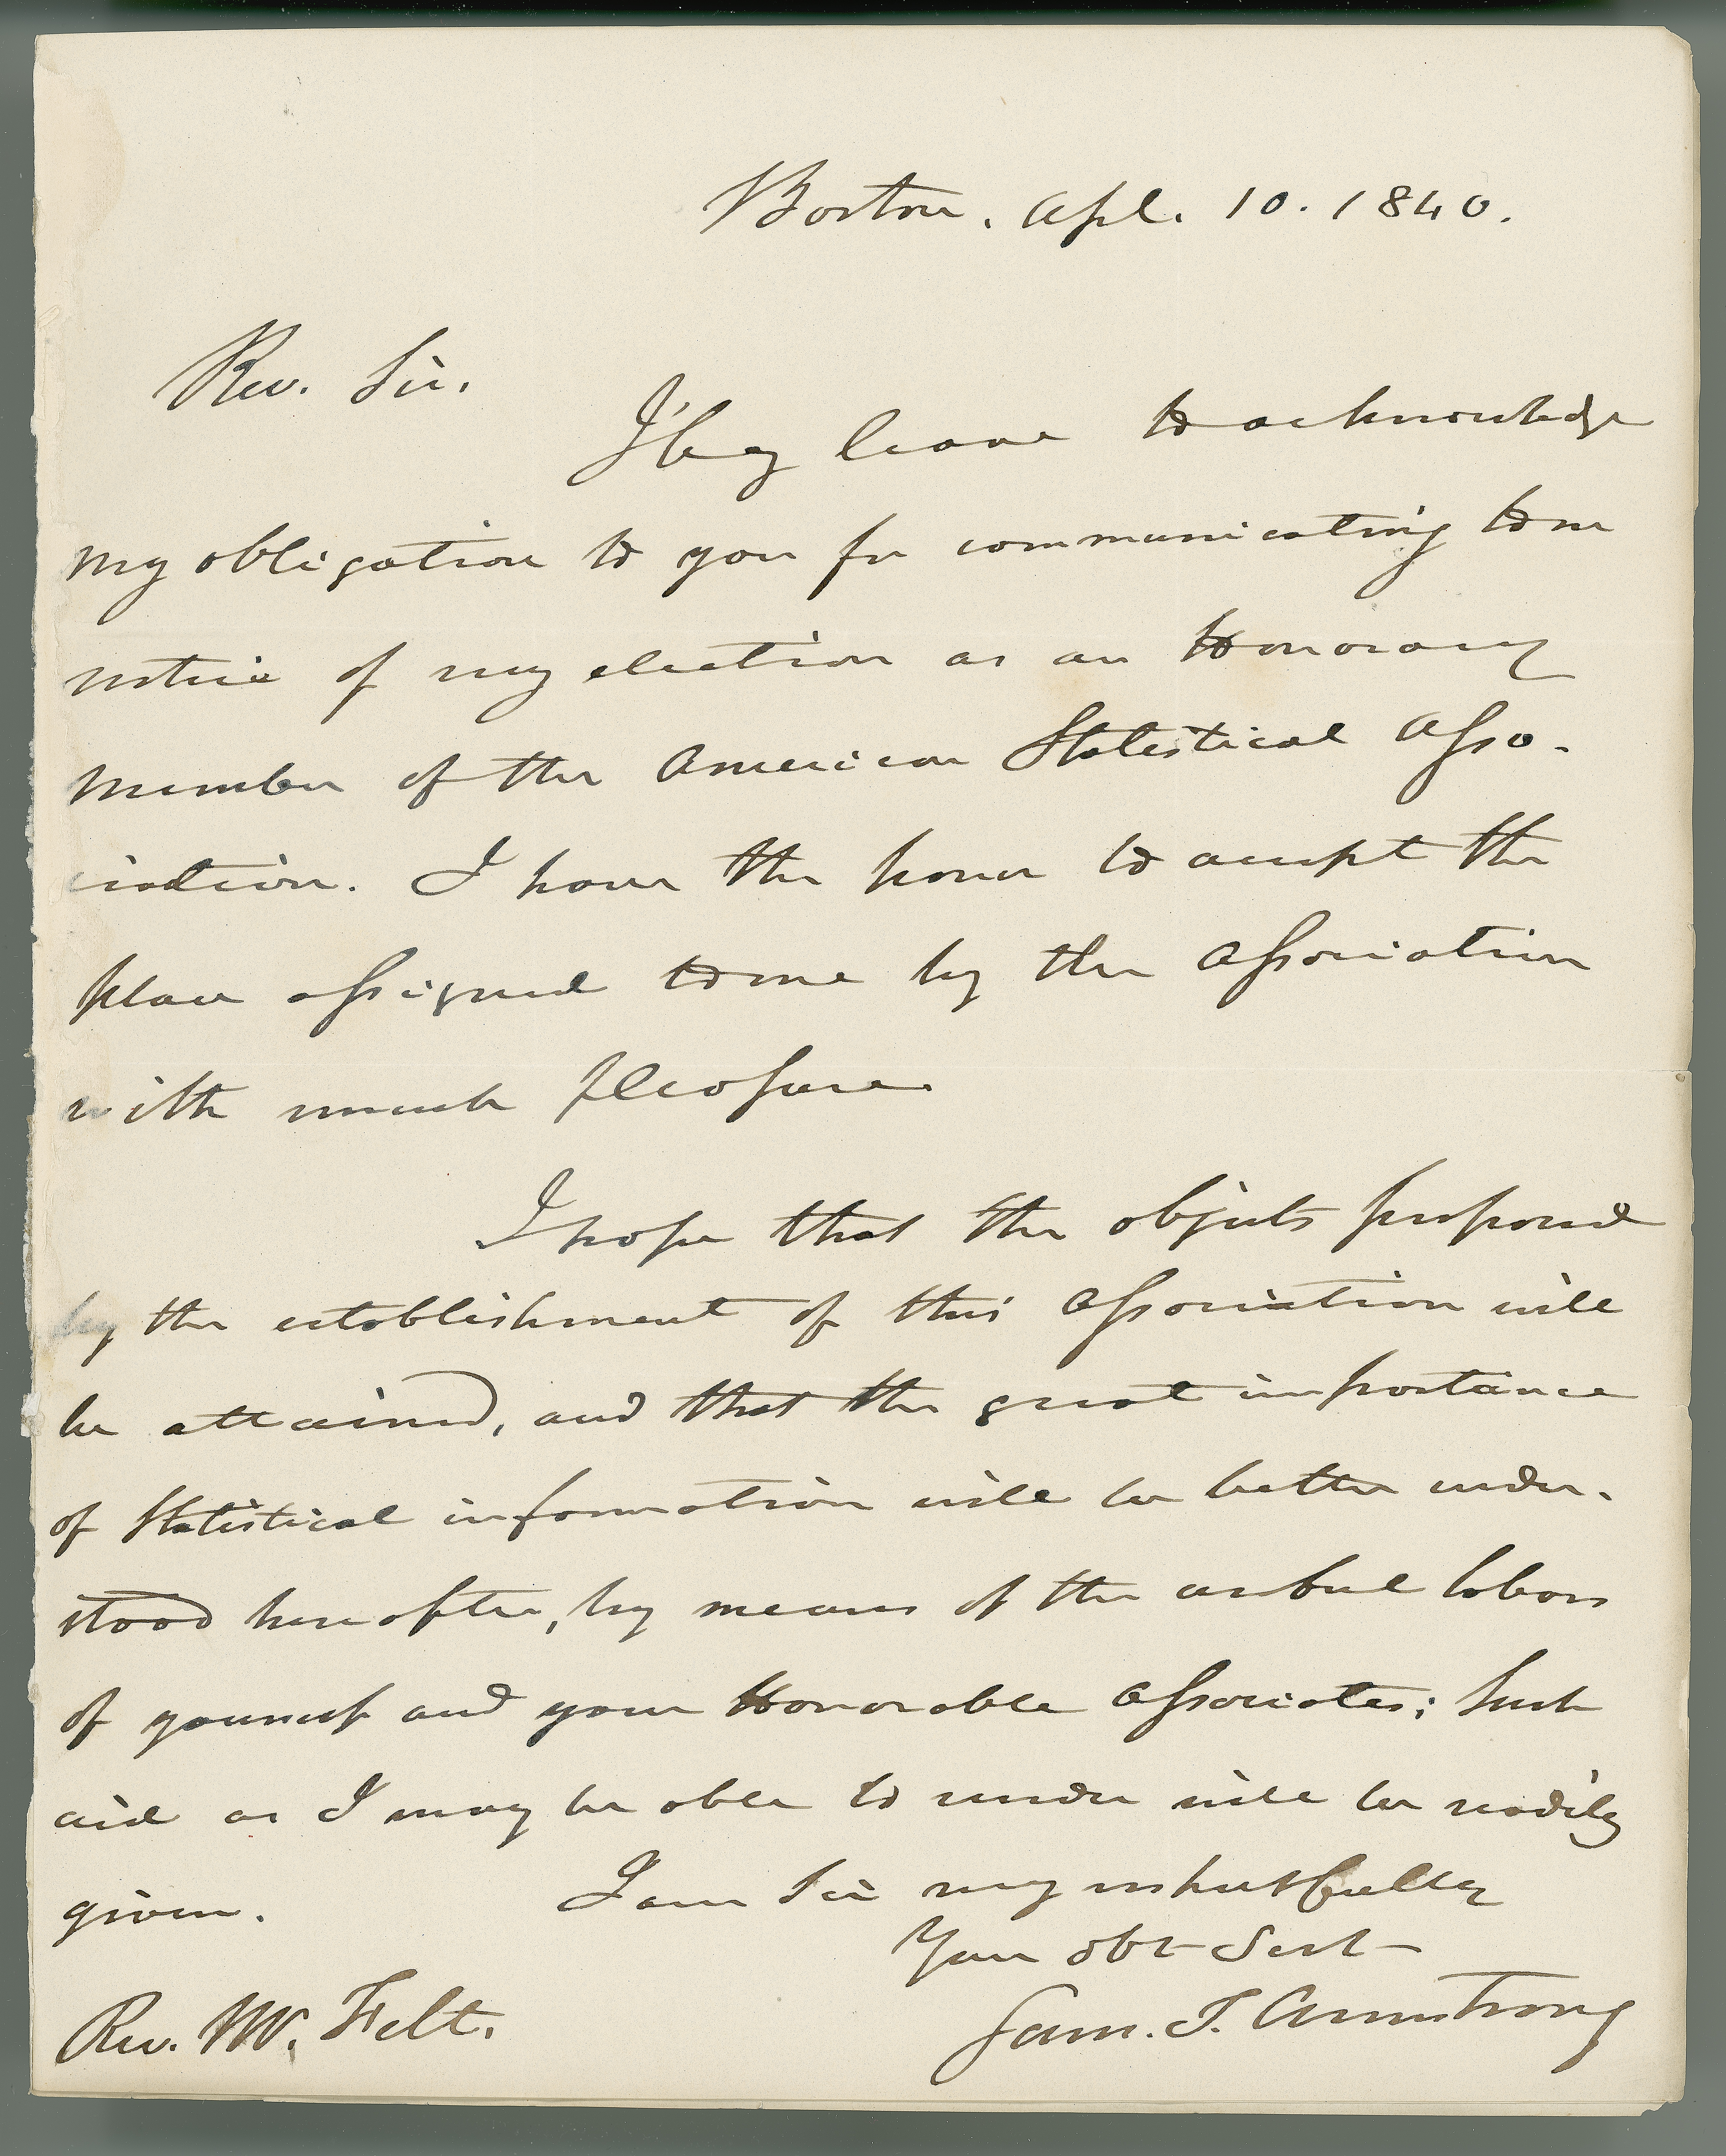 Boston. Apl. 10. 1840.
Rev. Sir.
I beg leave to acknowledge
my obligation to you for communicating to me
notice of my election as an Honorary
Member of the American Statistical Asso-
ciation. I have the honor to accept the
place assigned to me by the Association
with much pleasure.
I hope that the objects proposed
by the establishment of this Association will
be attained, and that the great importance
of Statistical information will be better under-
stood hereafter, by means of the useful labors
of yourself and your Honorable Associates; Such
aid as I may be able to render will be readily
given.
I am Sir very respectfully
Your obt Servt
Sam. T. Armstrong
Rev. Mr. Felt.